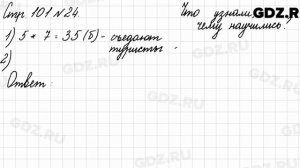 Стр 101 № 24.
Что узнали,
чему научились?
1) 5 * 7 = 35 (б) - съедают
туристы.
2)
Ответ:
GDZ.RU
GDZ.RU
GDZ.RU
GDZ.RU